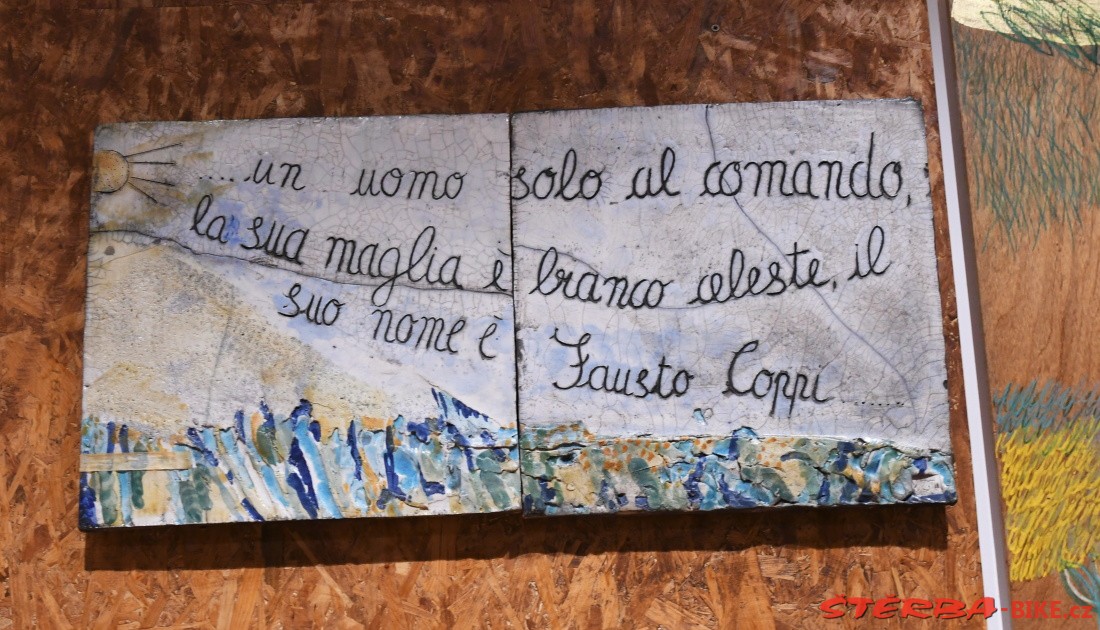 .....un uomo solo al comando,
la sua maglia è branco celeste, il
suo nome è Fausto Coppi ......
STERBA-BIKE.cz